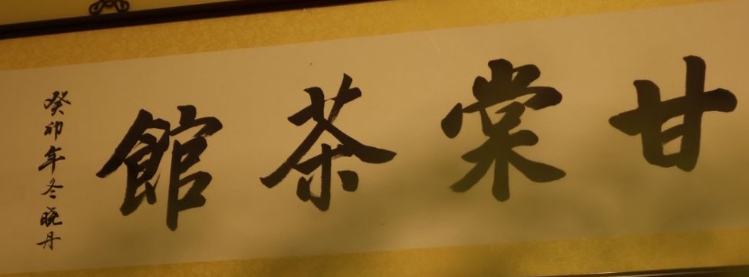 甘棠茶館
癸卯年冬晓丹